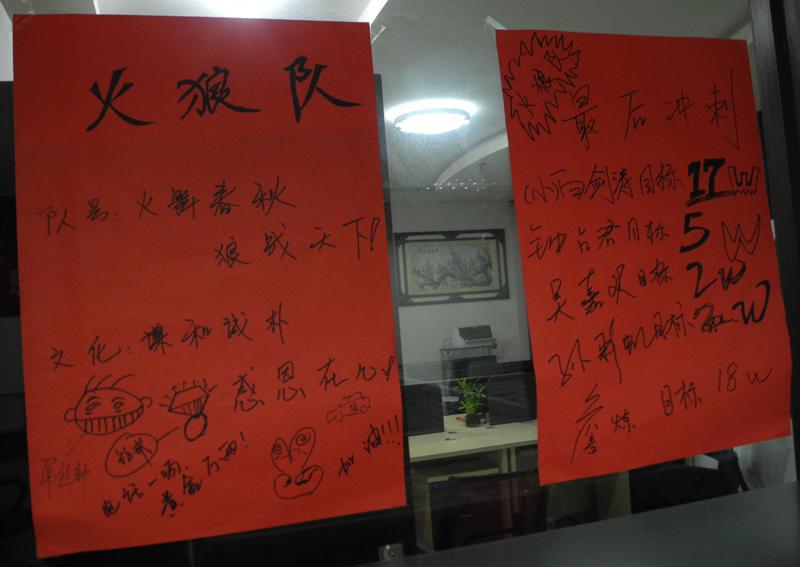 火狼队
队号：火舞春秋
狼战天下！
文化：谦和诚朴
感恩在心！
屌丝种
电话一响，
黄金万两！
加油!!!
火狼
最后冲刺
(小)白剑涛目标 17W
钟占君目标 5W
吴嘉欢目标 2W
目标 W
目标 18W